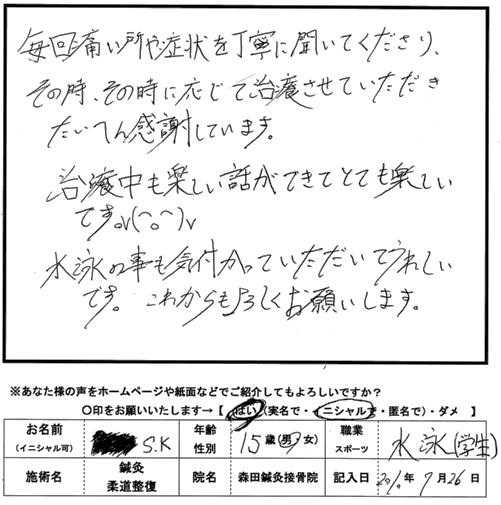 毎回痛い所や症状を丁寧に聞いてくださり、
その時、その時に応じて治療させていただき
たいへん感謝しています。
治療中も楽しい話ができてとても楽しい
です。v(^o^)v
水泳の事も気付かっていただいてうれしい
です。これからもよろしくお願いします。
※あなた様の声をホームページや紙面などでご紹介してもよろしいですか？
〇印をお願いいたします→【 はい（実名で・イニシャルで・匿名で）・ダメ 】
お名前
（イニシャル可）
S.K
年齢
性別
15歳（男・女）
職業
スポーツ
水泳（学生）
施術名
鍼灸
柔道整復
院名
森田鍼灸接骨院
記入日
年 7月26日